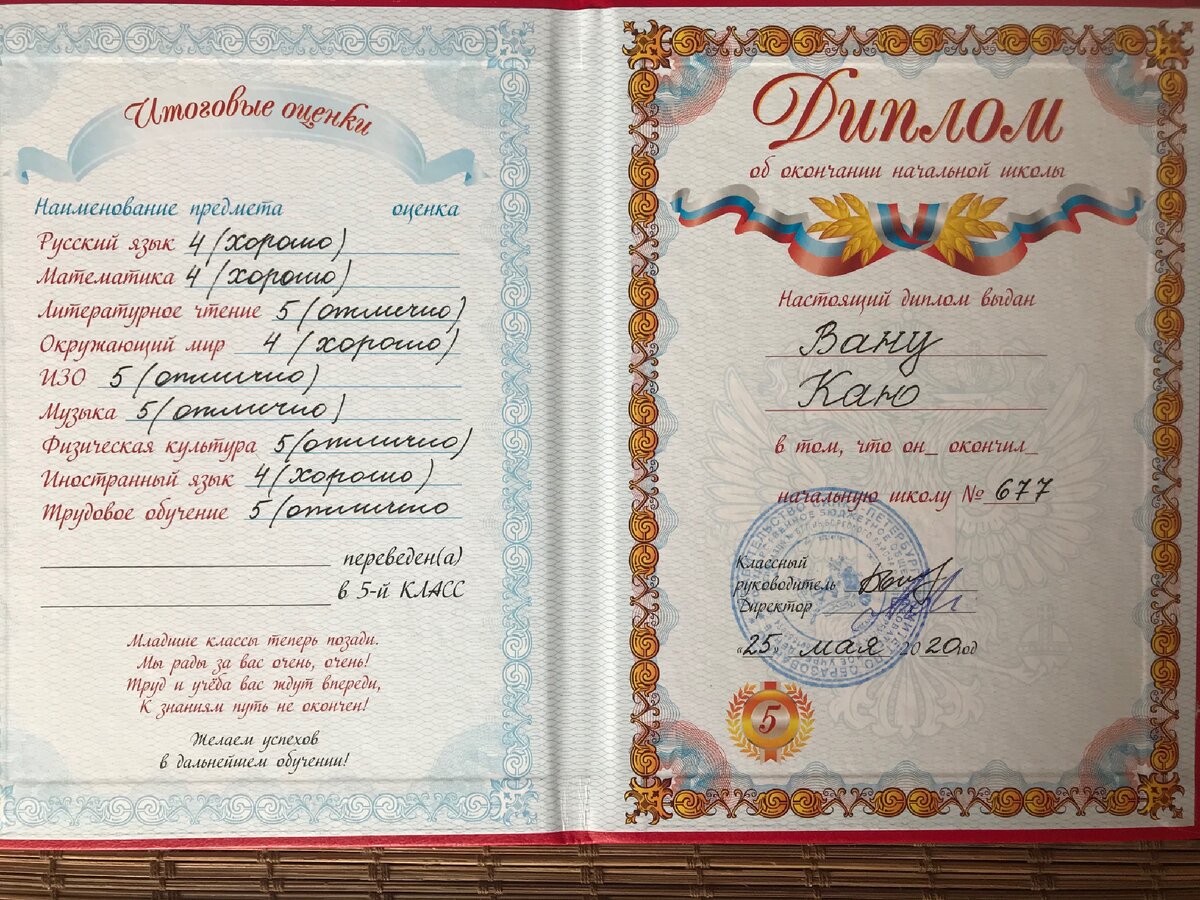 Итоговые оценки
Наименование предмета оценка
Русский язык 4 (хорошо)
Математика 4 (хорошо)
Литературное чтение 5 (отлично)
Окружающий мир 4 (хорошо)
ИЗО 5 (отлично)
Музыка 5 (отлично)
Физическая культура 5 (отлично)
Иностранный язык 4 (хорошо)
Трудовое обучение 5 (отлично
переведен(а)
в 5-й КЛАСС
Младшие классы теперь позади.
Мы рады за вас очень, очень!
Труд и учёба вас ждут впереди,
К знаниям путь не окончен!
Желаем успехов
в дальнейшем обучении!
Диплом
об окончании начальной школы
Настоящий диплом выдан
Вану
Каю
в том, что он_ окончил_
начальную школу № 677
Классный
руководитель
Директор
«25» мая 2020 год
5